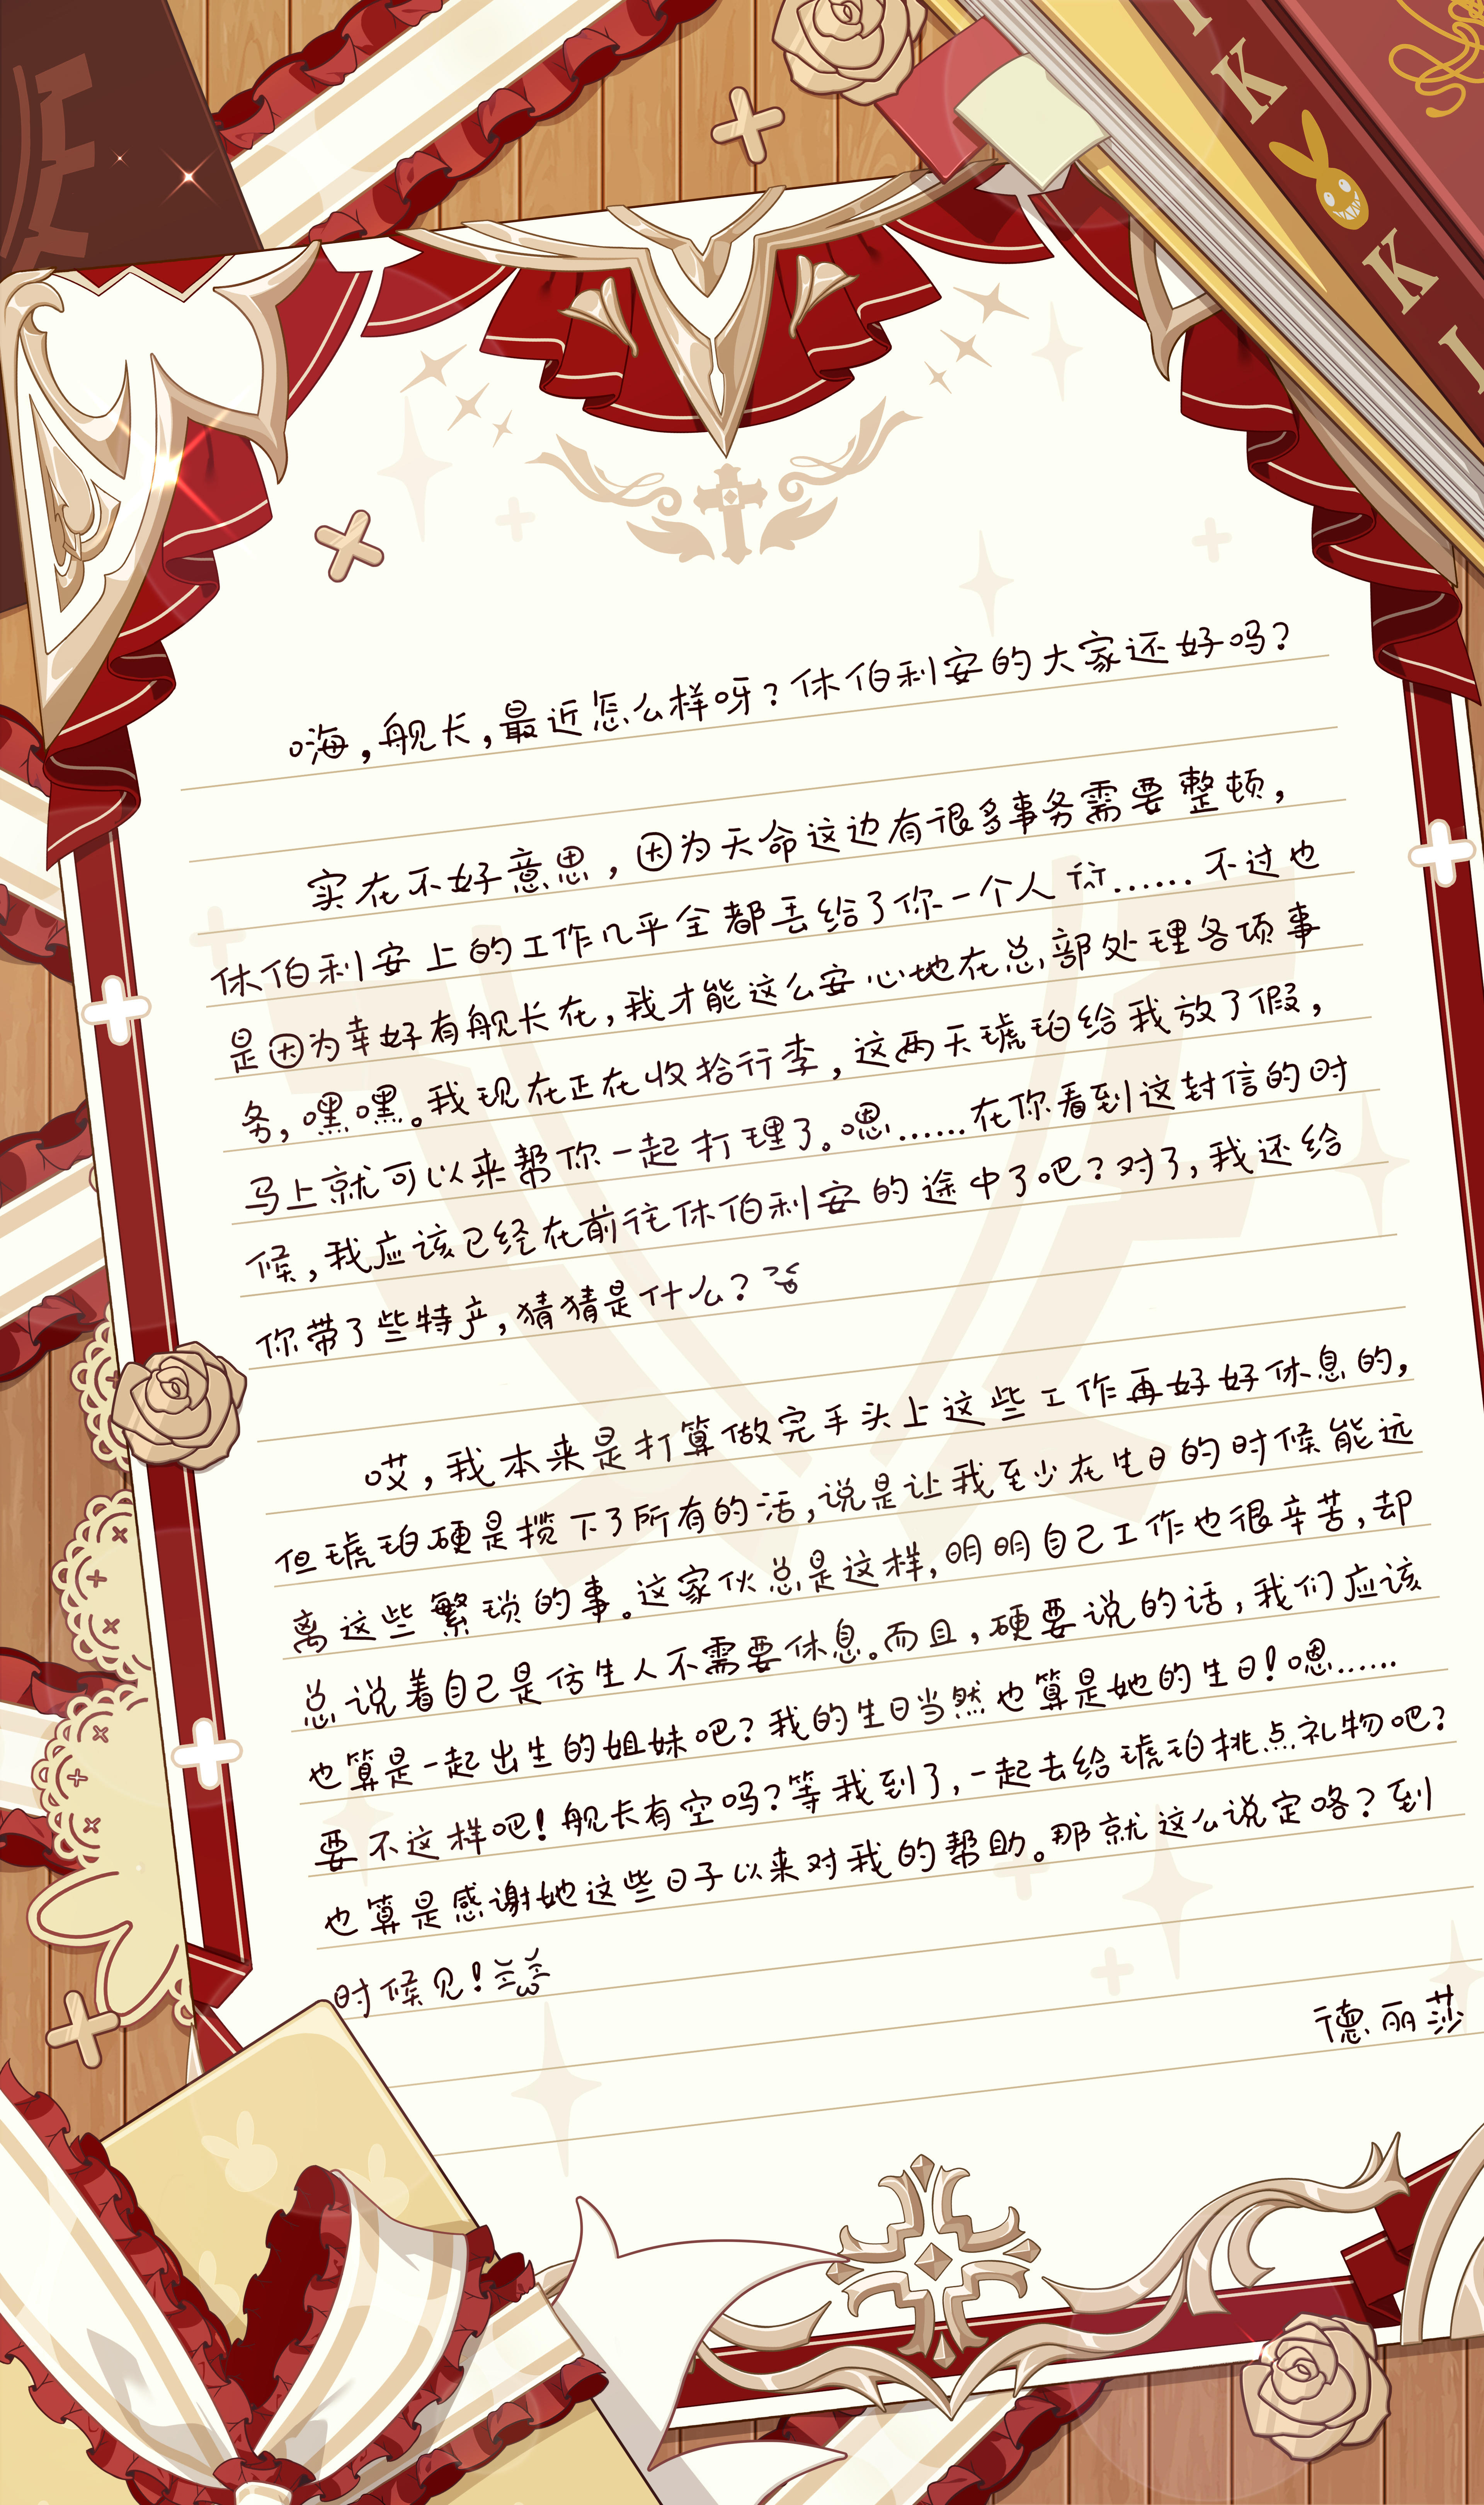 KIKKI
嗨,舰长,最近怎么样呀?休伯利安的大家还好吗?
实在不好意思,因为天命这边有很多事务需要整顿,
休伯利安上的工作几乎全都丢给了你一个人……不过也
是因为幸好有舰长在,我才能这么安心地在总部处理各项事
务,嘿嘿。我现在正在收拾行李,这两天琥珀给我放了假,
马上就可以来帮你一起打理了。嗯……在你看到这封信的时
候,我应该已经在前往休伯利安的途中了吧?对了,我还给
你带了些特产,猜猜是什么?
哎,我本来是打算做完手头上这些工作再好好休息的,
但琥珀硬是揽下了所有的活,说是让我至少在生日的时候能远
离这些繁琐的事。这家伙总是这样,明明自己工作也很辛苦,却
总说着自己是仿生人不需要休息。而且,硬要说的话,我们应该
也算是一起出生的姐妹吧?我的生日当然也算是她的生日!嗯……
要不这样吧!舰长有空吗?等我到了,一起去给琥珀挑点礼物吧?
也算是感谢她这些日子以来对我的帮助。那就这么说定咯?到
时候见!
德丽莎